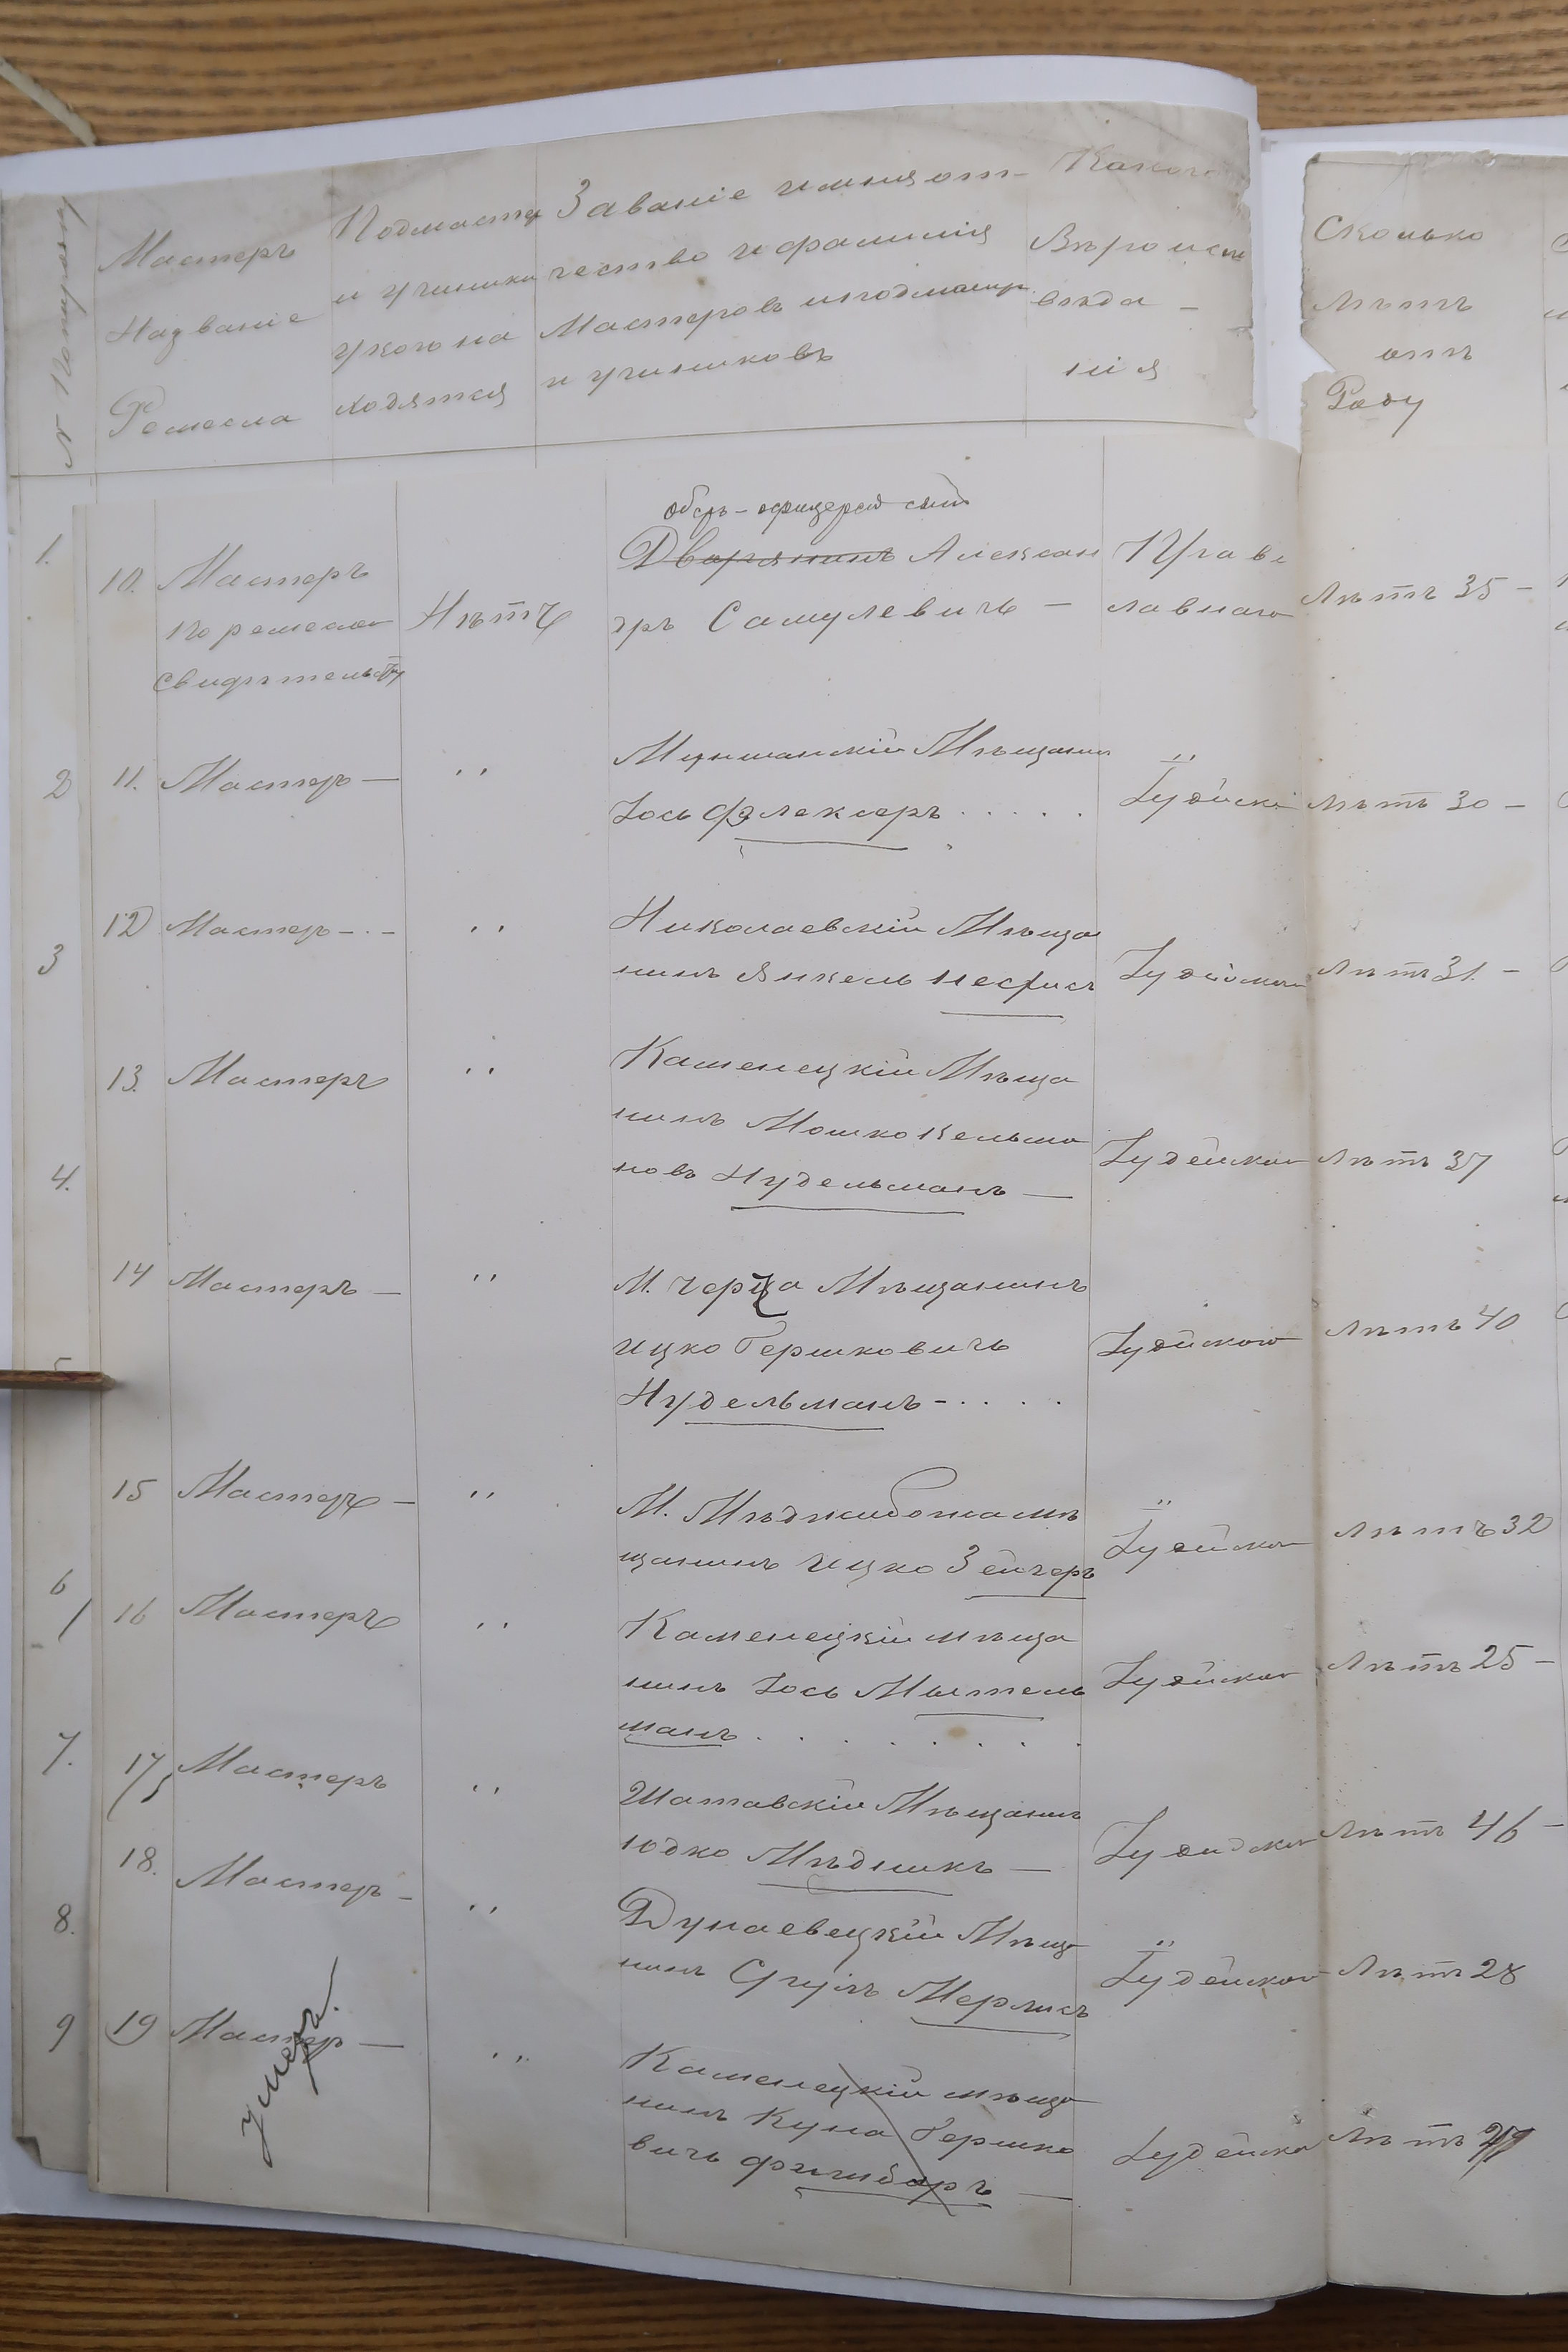 № По порядку
Мастеръ
Названіе
Ремесла
Подмастер
и ученики
у кого на
ходятся
Званіе имя и от-
чество и фамилія
Мастеровъ и подмастер.
и учениковъ
Какого
Вѣроиспо
вѣда -
нія
Сколько
лѣтъ
отъ
Роду
1.
10. Мастеръ
по ремеслен
свидѣтельству
Нѣтъ
оберъ-офицерскій сынъ
Дворянинъ Алексан
дръ Самулевичъ —
Право
славнаго
Лѣтъ 35 -
2
11. Мастеръ —
,,
Мѣщанинъ
Іось Флексеръ . . . . .
Іудейск
Лѣтъ 30 -
3
12 Мастеръ - . -
,,
Николаевскій Мѣща
нинъ Янкель Несфисъ
Іудейской
Лѣтъ 31. -
4.
13. Мастеръ
,,
Каменецкій Мѣща
нинъ Мошко Кельма
новъ Нудельманъ —
Іудейской
Лѣтъ 37
14 Мастеръ —
,,
М. Черча Мѣщанинъ
Ицко Гершковичъ
Нудельманъ - . . . .
Іудейского
Лѣтъ 40
5
15 Мастеръ -
,,
М. Мѣджибожа мѣ
щанинъ Ицко Зейгеръ
Іудейской
Лѣтъ 32
6
16 Мастеръ
,,
Каменецкій мѣща
нинъ Іось Мытель
манъ . . . . . . .
Іудейской
Лѣтъ 25 -
7.
17 Мастеръ
,,
Шатавскій Мѣщанин
Юдко Мѣдникъ —
Іудейской
Лѣтъ 46 -
8.
18. Мастеръ -
,,
Дунаевецкій Мѣща
нинъ Сруль Мерлисъ
Іудейской
Лѣтъ 28
9
19 Мастер —
умеръ.
,,
Каменецкій мѣща
нинъ Куна Гершко
вичъ —
Іудейско
Лѣтъ